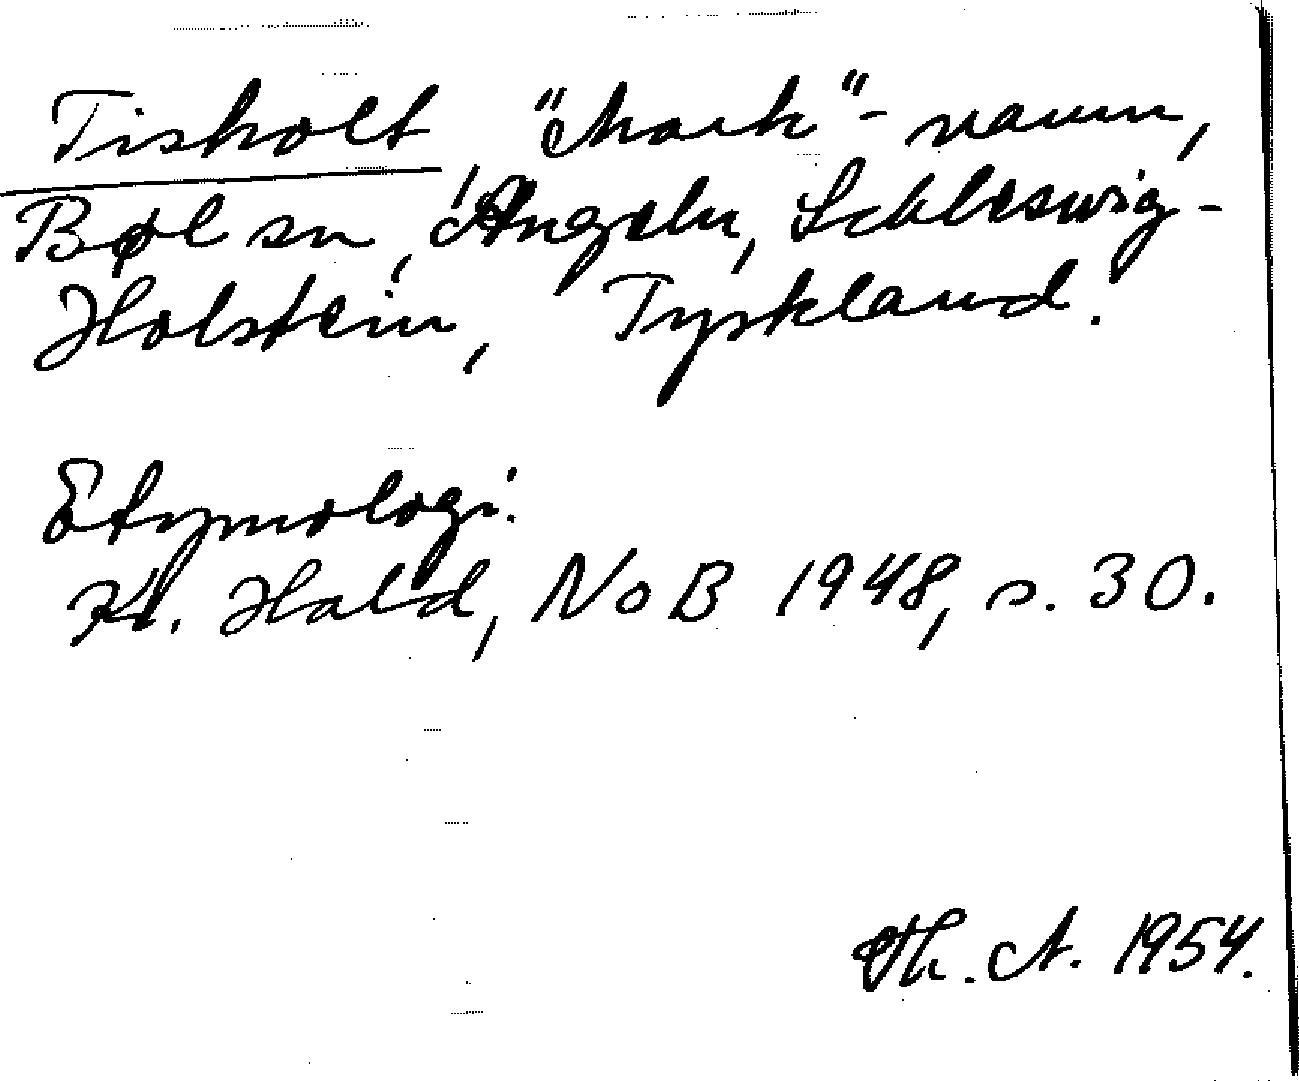 Tisholt, "Mark"-navn,
Bølsn, Angeln, Schleswig-
Holstein, Tyskland.
Etymologi:
Kr. Hald, NoB 1948, s. 30.
Th. A. 1954.